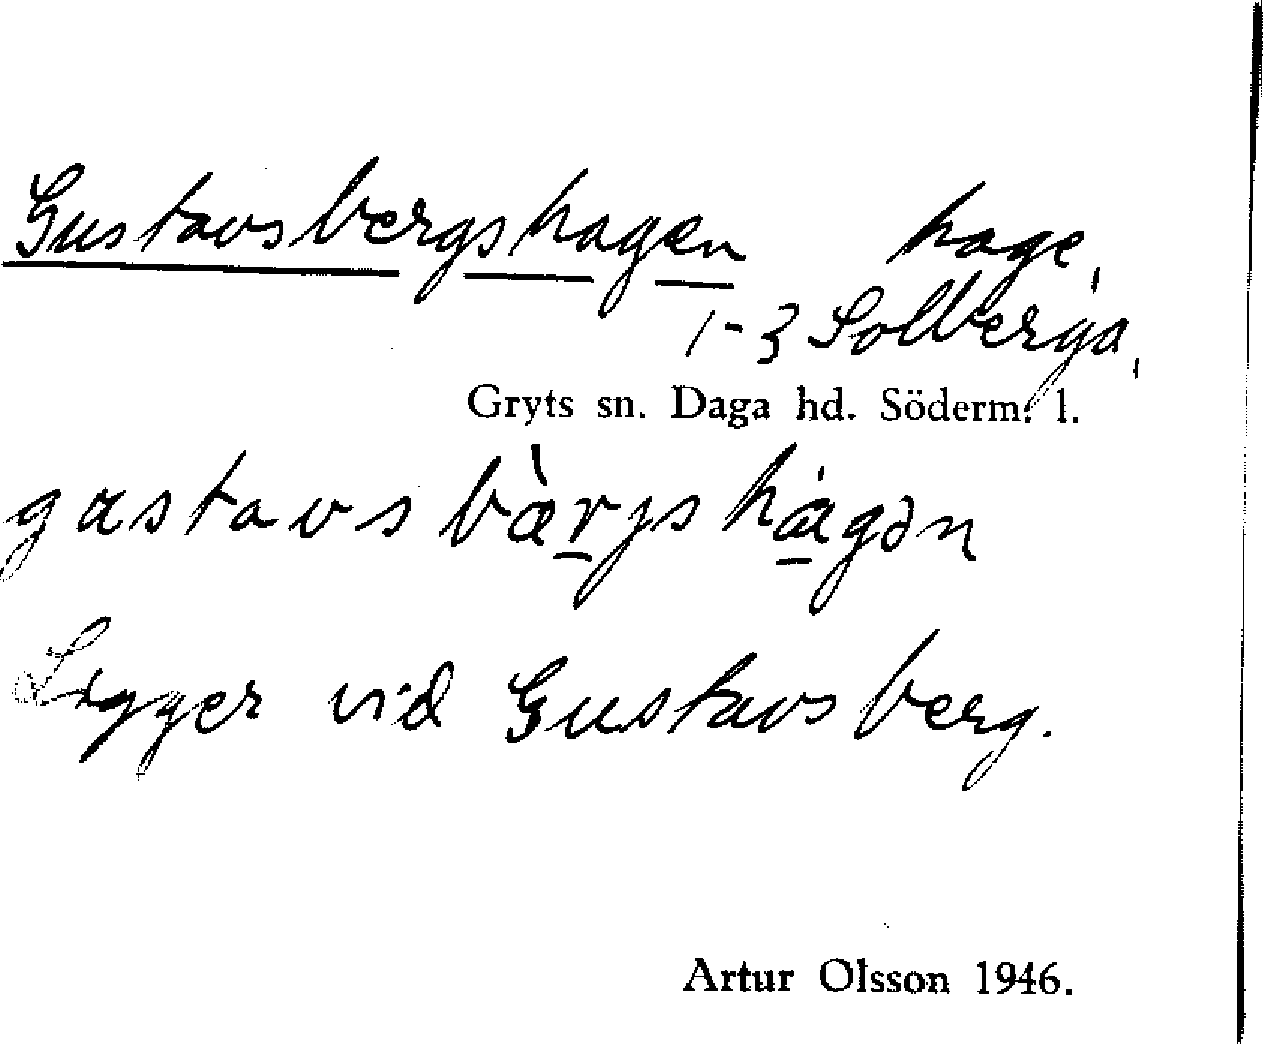 Gustavsbergshagen hage,
1-3 Solberga,
Gryts sn. Daga hd. Söderm. l.
gastavs bæ̀rjs hágən
Ligger vid Gustavsberg.
Artur Olsson 1946.